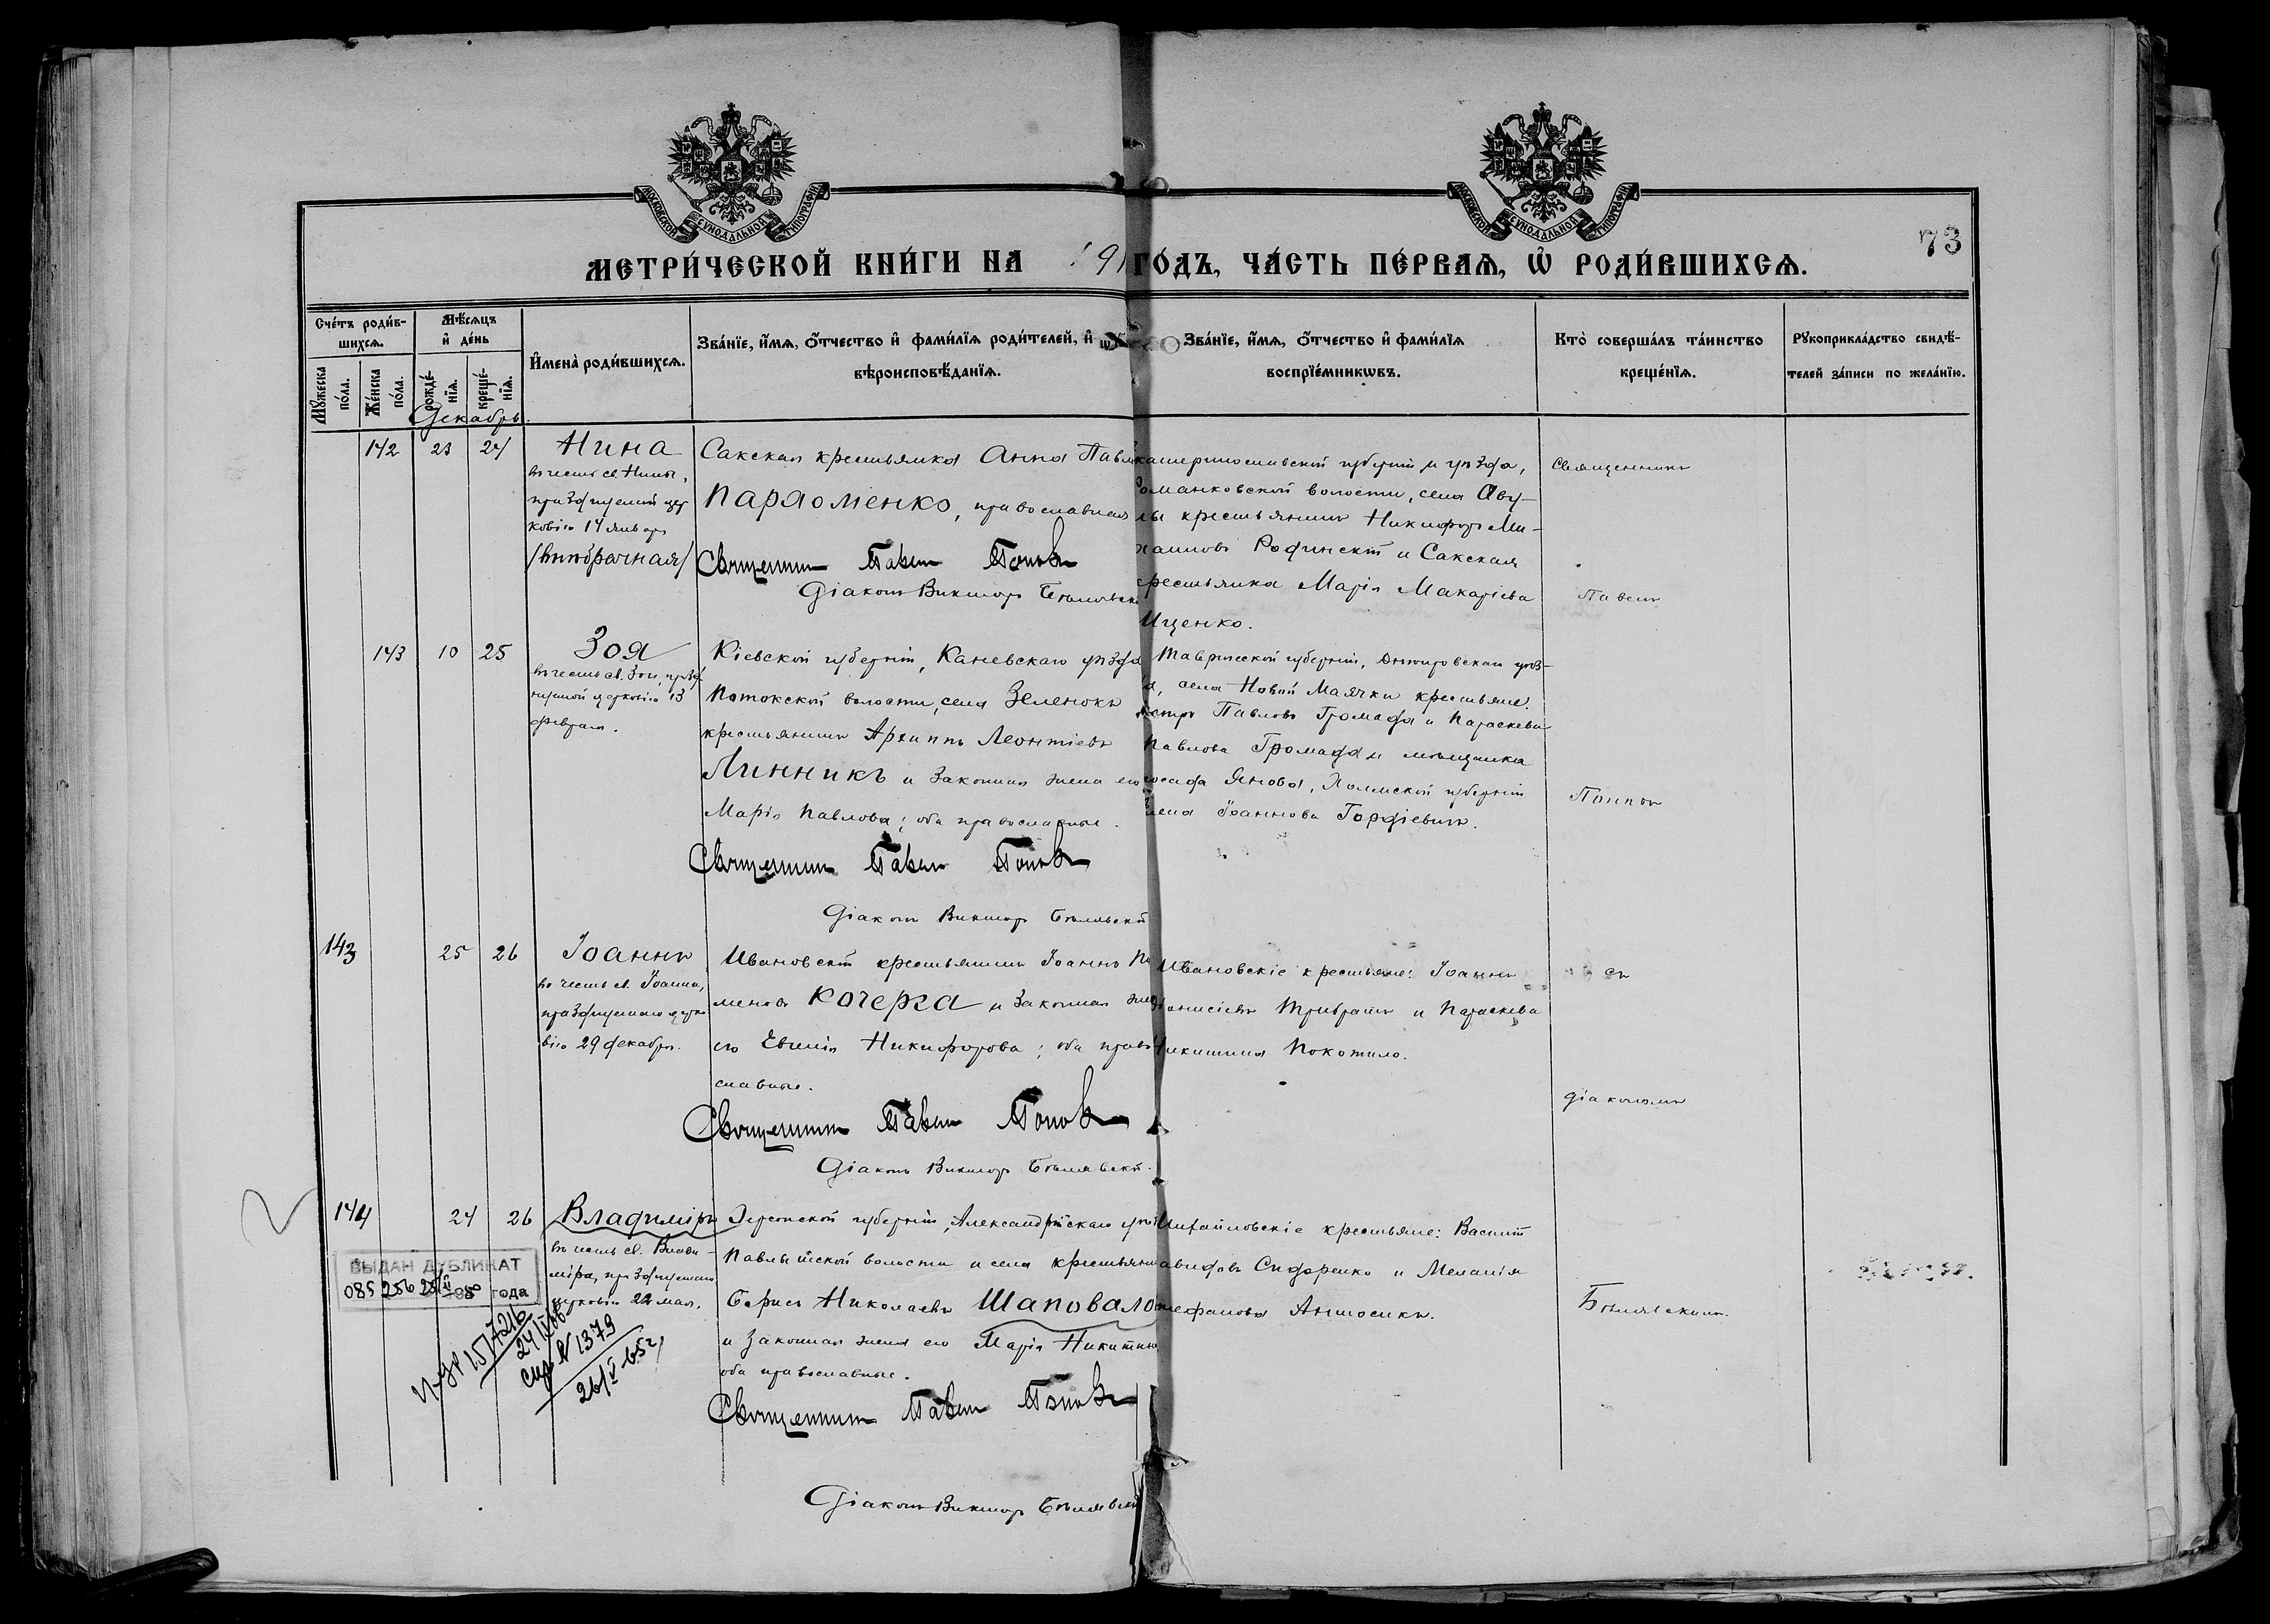 МОСКОВСКОЙ СѴНОДАЛЬНОЙ ТИПОГРАФІИ
МОСКОВСКОЙ СѴНОДАЛЬНОЙ ТИПОГРАФІИ
73
МЕТРИ́ЧЕСКОЙ КНИ́ГИ НА 191
ГО́ДЪ, ЧА́СТЬ ПЕ́РВАѦ, Ѽ РОДИ́ВШИХСѦ.
Сче́тъ роди́в-
шихсѧ.
Мꙋ́жеска по́ла.
Же́нска по́ла.
Мѣ́сѧцъ
и҆ де́нь
рожде́-
нїѧ.
креще́-
нїѧ.
И҆мена̀ роди́вшихсѧ.
Зва́нїе, и҆́мѧ, ѻ҆́тчество и҆ фами́лїѧ роди́телей, и҆
вѣроисповѣ́данїѧ.
Зва́нїе, и҆́мѧ, ѻ҆́тчество и҆ фами́лїѧ
воспрїе́мникѡвъ.
Кто̀ соверша́лъ та́инство
креще́нїѧ.
Рꙋкоприкла́дство свидѣ́-
телей за́писи по жела́нїю.
Декабрь.
142 23 24 Нина
въ честь св. Нины,
празднуемой цер
ковію 14 января
/внѣбрачная/
Сакская крестьянка Анна
Пархоменко, православная
Священникъ Павелъ Поповъ
Діаконъ Викторъ Бѣлявскій
катеринославской губерніи и уѣзда,
Романковской волости, села Аву-
лы крестьянинъ Никифоръ Ми-
хаиловъ Родинскій и Сакская
крестьянка Марія Макаріева
Ищенко.
Священникъ
Павелъ
143 10 25 Зоя
въ честь св. Зои, празд
нуемой церковію 13
февраля.
Кіевской губерніи, Каневскаго уѣзда
Потокской волости, села Зеленокъ
крестьянинъ Архиппъ Леонтіевъ
Линникъ и законная жена его
Марія Павлова; оба православные.
Священникъ Павелъ Поповъ
Діаконъ Викторъ Бѣлявскій
Таврической губерніи, Днѣпровскаго уѣз-
да, села Новой Маячки крестьяне:
Петръ Павловъ Громада и Параскева
Павлова Громада и мѣщанка
посада Янова, Холмской губерніи
Іоаннова Гордіевичъ.
Поповъ
143 25 26 Іоаннъ
въ честь св. Іоанна,
празднуемаго церко-
вію 29 декабря.
Ивановскій крестьянинъ Іоаннъ
меновъ Кочерга и законная жена
его Евгенія Никифорова; оба право
славные.
Священникъ Павелъ Поповъ
Діаконъ Викторъ Бѣлявскій.
Ивановскіе крестьяне: Іоаннъ
Діонисіевъ Трибратъ и Параскева
Никитина Покотило.
съ
діакономъ
144 24 26 Владиміръ
въ честь св. Влади-
міра, празднуемаго
церковію 22 мая.
ВЫДАН ДУБЛИКАТ
085256 25/II 1980 года
1379
26/V-65г
Херсонской губерніи, Александрійскаго
Павлышской волости и села крестьянинъ
Борисъ Николаевъ Шаповало
и законная жена его Марія Никитина
оба православные.
Священникъ Павелъ Поповъ
Діаконъ Викторъ Бѣлявскій
Михайловскіе крестьяне: Василій
Давидовъ Сидоренко и Меланія
Стефанова Антосикъ.
Бѣлявскимъ.